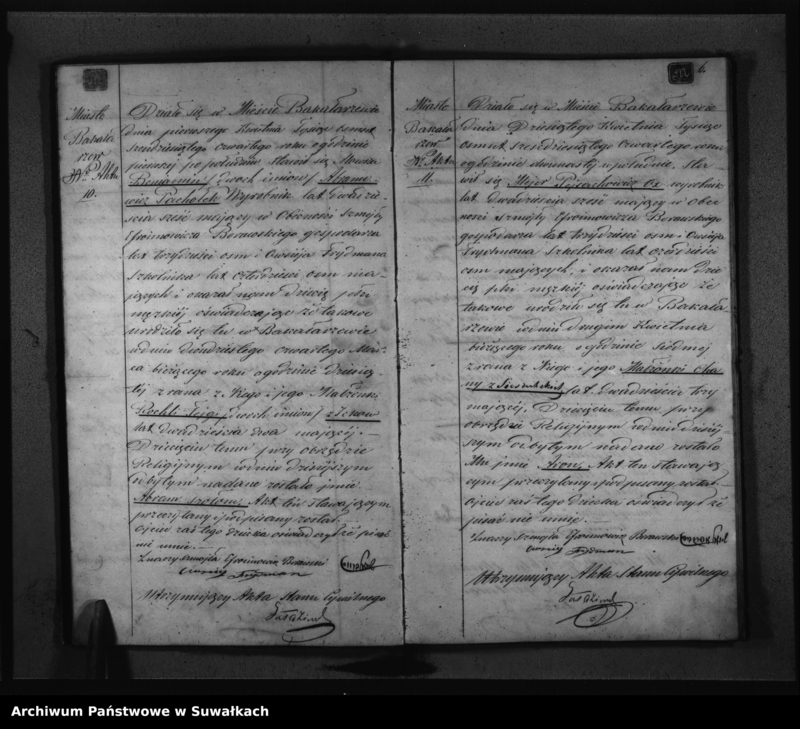 Miasto
Bakała
rzew
Nr Aktu
10.
Działo się w Mieście Bakałarzewie
dnia pierwszego Kwietnia Tysiąc osmset
sześćdziesiątego czwartego roku o godzinie
pierwszej po południu stawił się
Beniamin / dwoch imion / Abramo
wicz Pachołek Wyrobnik lat dwadzie
ścia sześć mający w Obecności Szmujły
Borawskiego gospodarza
lat trzydzieści osm i Owsieja Frydmana
Szkolnika lat czterdzieści osm ma
jących i okazał nam dziecię płci
męzkiéj oświadczając że takowe
urodziło się tu w Bakałarzewie
w dniu dwudziestego czwartego Mar
ca bieżącego roku o godzinie dziesią
téj z rana z Niego i jego Małżonki
Rochli Fejgi / dwoch imion /
lat dwadzieścia dwa mającéj.
Dziecięciu temu przy obrzędzie
Religijnym w dniu dzisiejszym
odbytym nadane zostało imie
Abram Akt ten stawającym
przeczytany i podpisany został
Ojciec zaś tego dziecka oświadczył że pisać
nie umie.
Borawski
Utrzymujący Akta Stanu Cywilnego
6
Miasto
Bakała
rzew
Nr Akta
11.
Działo się w Mieście Bakałarzewie
dnia Dziesiątego Kwietnia Tysiąc
osmset sześćdziesiątego czwartego roku
o godzinie dwunastéj w południe. Sta
wił się Mejer wyrobnik
lat dwadzieścia sześć mający w obec
ności Szmujły Borawskiego
gospodarza lat trzydzieści osm i Owsieja
Frydmana Szkolnika lat czterdzieści
osm mających, i okazał nam dzie
cię płci męzkiéj oświadczając że
takowe urodziło się tu w Bakała
rzewie w dniu drugim Kwietnia
bieżącego roku o godzinie siódmej
z rana z Niego i jego Małżonki Cha
ny z lat dwadzieścia trzy
mającéj. Dziecięciu temu przy
obrzędzie Religijnym w dniu dzisiej
szym odbytym nadane zostało
imie Aron. Akt ten stawając
cym przeczytany i podpisany został
Ojciec zaś tego dziecka oświadczył że
pisać nie umie.
Borawski
Utrzymujący Akta Stanu Cywilnego
Archiwum Państwowe w Suwałkach